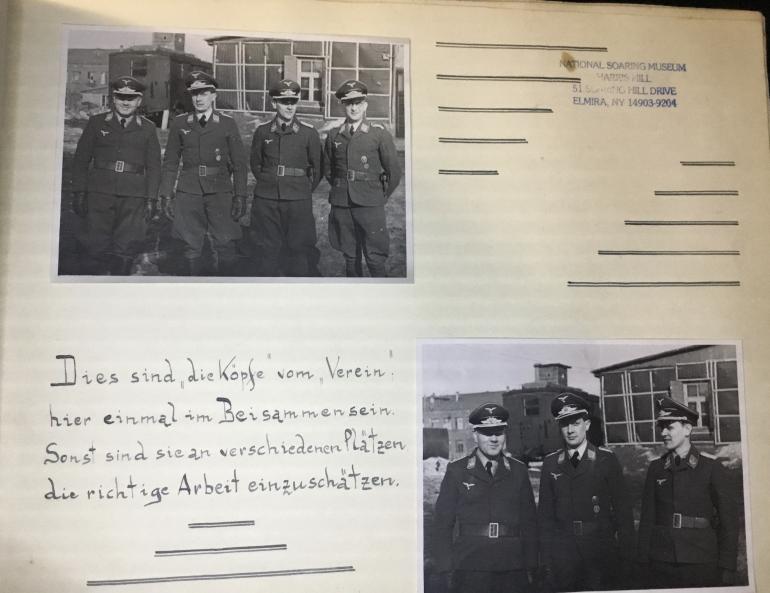 NATIONAL SOARING MUSEUM
HARRIS HILL
51 SOARING HILL DRIVE
ELMIRA, NY 14903-9204
Dies sind „die Köpfe" vom „Verein",
hier einmal im Beisammensein.
Sonst sind sie an verschiedenen Plätzen
die richtige Arbeit einzuschätzen.